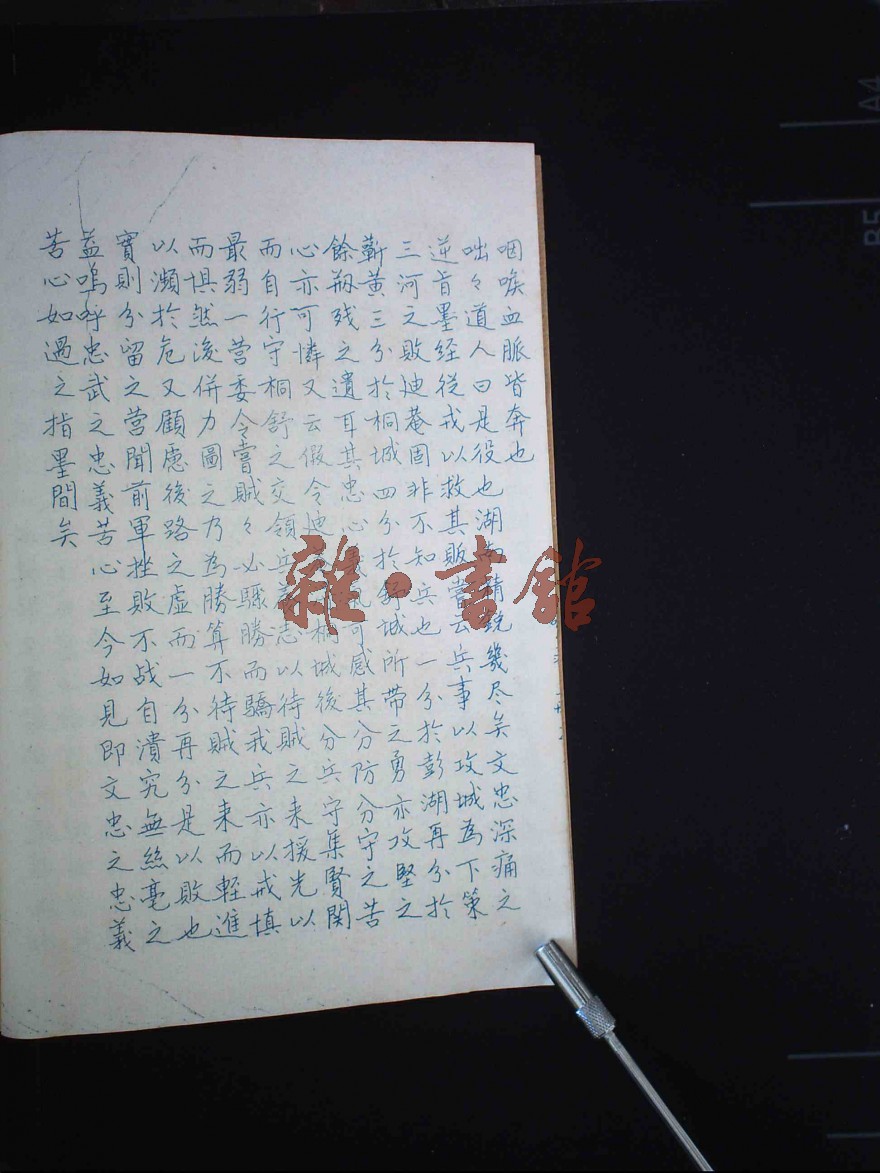 咽喉血脈皆奔也
咄々道人曰是役也湖南精銳幾尽矣文忠深痛之
逆肯墨経從戎以救其敗嘗云兵事以攻城為下策
三河之敗迪菴固非不知兵也一分於彭湖再分於
蘄黄三分於桐城四分於舒城所帶之勇亦攻堅之
餘殘之遺耳其忠心可感其分防分守之苦
心亦可憐又云假令迪桐城後分兵守集賢関
而自行守桐舒之交領兵養志以待賊之来援先以
最弱一營委令嘗賊々必驟勝而驕我兵亦以戒慎
而惧然後併力圖之乃為勝算不待賊之来而輕進
以瀕於危又顧慮後路之虛而一分再分是以敗也
實則分留之營聞前軍挫敗不战自潰究無絲毫之
益嗚呼忠武之忠義苦心至今如見即文忠之忠義
苦心如遇之指墨間矣
雜·書館